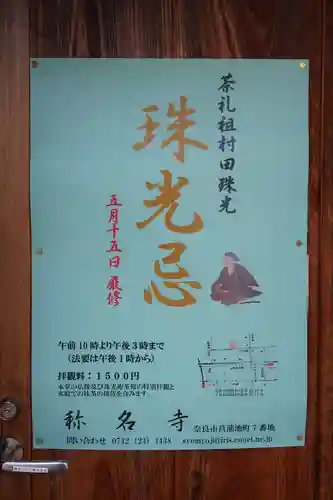 茶礼祖村田珠光
珠光忌
五月十五日 厳修
午前10時より午後3時まで
(法要は午後1時から)
拝観料:1500円
本堂の仏像及び珠光庵茶席の特別拝観と
衣庭での抹茶の接待を含みます。
称名寺 奈良市菖蒲池町7番地
問い合わせ 0742 (23) 4438 syomyoji@iris.eonet.ne.jp